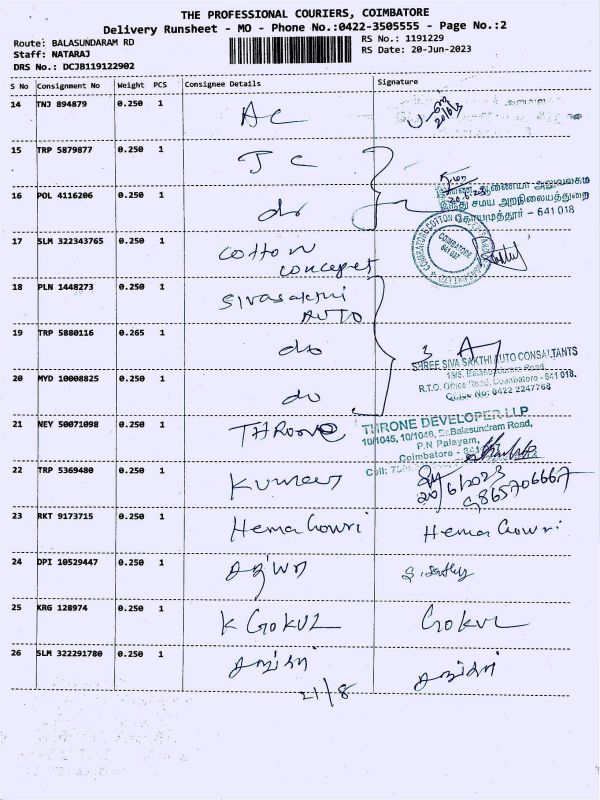 THE PROFESSIONAL COURIERS, COIMBATORE
Delivery Runsheet - MO - Phone No.:0422-3505555 - Page No.:2
Route: BALASUNDARAM RD
RS No.: 1191229
Staff: NATARAJ
RS Date: 20-Jun-2023
DRS No.: DCJB119122902
S No Consignment No Weight PCS Consignee Details Signature
14 TNJ 894879 0.250 1 AC
20/6/23
15 TRP 5879877 0.250 1 JC
16 POL 4116206 0.250 1 do
இந்து சமய அறநிலையத்துறை
கோயமுத்தூர் - 641 018
17 SLM 322343765 0.250 1 Cotton
concepts
COIMBATORE
18 PLN 1448273 0.250 1 Sivasakthi
AUTO
19 TRP 5880116 0.265 1 do 3
SHREE SIVA SAKTHI AUTO CONSULTANTS
19/5, Balasundaram Road,
R.T.O. Office Road, Coimbatore - 641 018.
Office No: 0422 2247768
20 MYD 10008825 0.250 1 do
21 NEY 50071098 0.250 1 THRONE
THRONE DEVELOPER LLP
10/1045, 10/1046, Dr.Balasundram Road,
P.N Palayam,
Coimbatore -
Cell:
22 TRP 5369480 0.250 1 Kumar
20/6/2023
9865706667
23 RKT 9173715 0.250 1 Hema Gowri Hema Gowri
24 DPI 10529447 0.250 1
25 KRG 128974 0.250 1 K GOKUL GOKUL
26 SLM 322291780 0.250 1
21/8